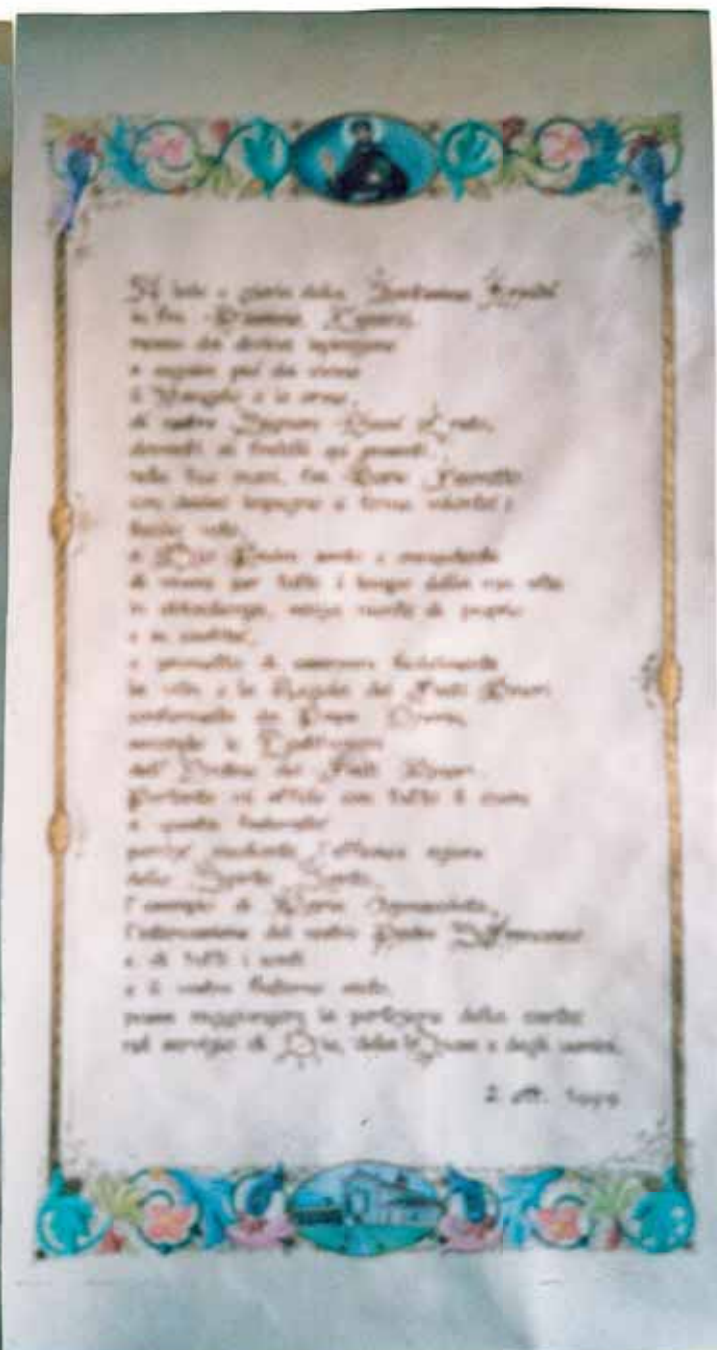 A lode e gloria della Santissima Trinità
io, fra
mosso da divina ispirazione
a seguire più da vicino
il Vangelo e le orme
di nostro Signore Gesù Cristo,
davanti ai fratelli qui presenti,
nelle tue mani, fra
con impegno e ferma volontà:
faccio voto
a Dio Padre santo e onnipotente
di vivere per tutto il tempo della mia vita
in obbedienza, senza nulla di proprio
e in castità,
e prometto di osservare fedelmente
la vita e la Regola dei Frati Minori
confermata da Papa Onorio,
secondo le Costituzioni
dell'Ordine dei Frati Minori.
Pertanto mi affido con tutto il cuore
a questa fraternità
perché, mediante l'efficace azione
dello Spirito Santo,
l'esempio di Maria Immacolata,
l'intercessione del nostro Padre Francesco
e di tutti i santi
e il vostro fraterno aiuto,
possa raggiungere la perfezione della carità
nel servizio di Dio, della Chiesa e degli uomini.
2 ott.